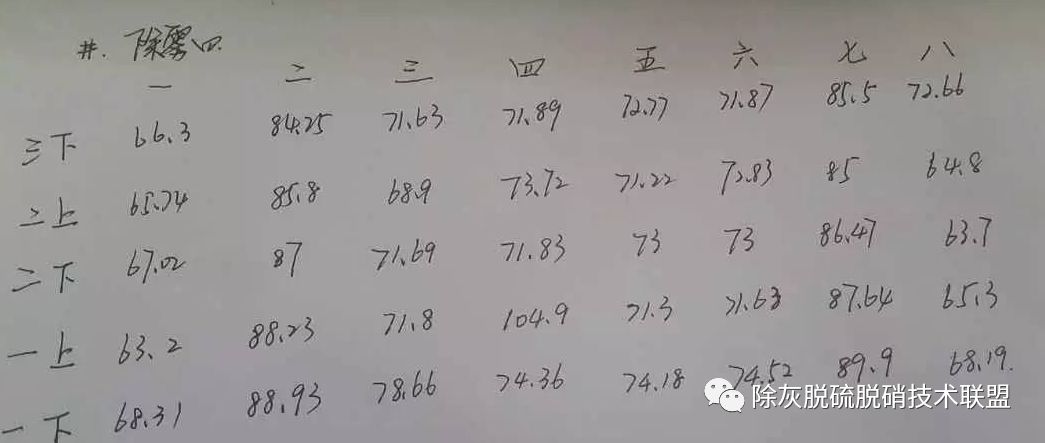 #. 除雾四
一 二 三 四 五 六 七 八
三下 66.3 84.25 71.63 71.89 72.77 71.87 85.5 72.66
二上 65.74 85.8 68.9 73.72 71.22 72.83 85 64.8
二下 67.02 87 71.69 71.83 73 73 86.47 63.7
一上 63.2 88.23 71.8 104.9 71.3 71.63 87.64 65.3
一下 68.31 88.93 78.66 74.36 74.18 74.52 89.9 68.19.
除灰脱硫脱硝技术联盟